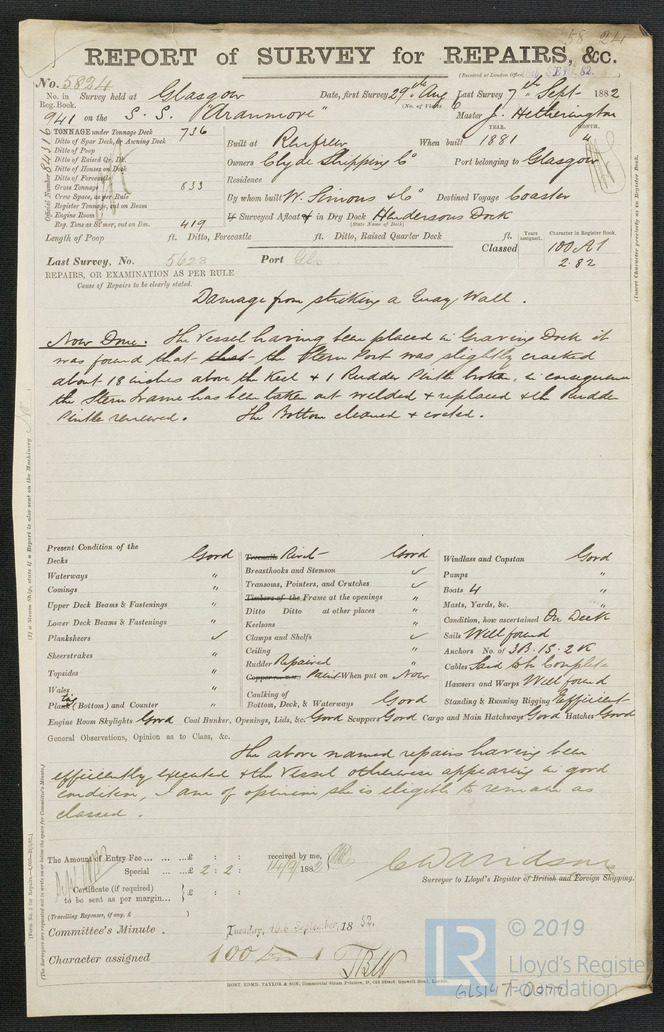 58 24
REPORT of SURVEY for REPAIRS, &c.
No. 5824
(Received at London Office,
No. in Reg. Book.
941
Survey held at Glasgow
Date, first Survey 29th Aug Last Survey 7th Sept 1882
(No. of Visits 6)
on the S. S. "Aranmore"
Master J. Hetherington
Official Number 84316
TONNAGE under Tonnage Deck 736
Ditto of Spar Deck, or Awning Deck
Ditto of Poop
Ditto of Raised Qr. Dk.
Ditto of Houses on Deck
Ditto of Forecastle
Gross Tonnage 833
Crew Space, as per Rule
Register Tonnage, cut on Beam
Engine Room
Reg. Tons as Steamer, cut on Bm. 419
Built at Renfrew When built YEAR. 1881 MONTH.
Owners Clyde Shipping Co Port belonging to Glasgow
Residence
By whom built W. Simons & Co Destined Voyage Coaster
& Surveyed Afloat & in Dry Dock Hendersons Dock
(State Name of Dock)
Length of Poop ft. Ditto, Forecastle ft. Ditto, Raised Quarter Deck ft.
Classed
Years assigned.
Character in Register Book.
100 A 1
2.82
(Insert Character precisely as in Register Book.
Last Survey, No. 5623 Port Gls
REPAIRS, OR EXAMINATION AS PER RULE
Cause of Repairs to be clearly stated.
Damage from striking a Quay Wall.
Now Done. The Vessel having been placed in Graving Dock it
was found that the Stern Post was slightly cracked
about 18 inches above the Keel & 1 Rudder Pintle broken, in consequence
the Stern Frame has been taken out welded & replaced & the Rudder
Pintle renewed. The Bottom cleaned & coated.
(If a Steam Ship, state if a Report is also sent on the Machinery
Present Condition of the
Decks Good
Waterways "
Comings "
Upper Deck Beams & Fastenings "
Lower Deck Beams & Fastenings "
Planksheers ✓
Sheerstrakes "
Topsides "
Wales "
Plating (Bottom) and Counter "
Treenails Rivets Good
Breasthooks and Stemson ✓
Transoms, Pointers, and Crutches ✓
Timbers of the Frame at the openings "
Ditto Ditto at other places "
Keelsons "
Clamps and Shelfs ✓
Ceiling "
Rudder Repaired "
Copper Paint When put on Now
Caulking of Bottom, Deck, & Waterways Good
Windlass and Capstan Good
Pumps "
Boats 4 "
Masts, Yards, &c. "
Condition, how ascertained On Deck
Sails Well found
Anchors No. of 3B. 1S. 2K
Cables Said to be Complete
Hawsers and Warps Well found
Standing & Running Rigging Efficient
Engine Room Skylights Good Coal Bunker, Openings, Lids, &c. Good Scuppers Good Cargo and Main Hatchways Good Hatches Good
General Observations, Opinion as to Class, &c.
The above named repairs having been
efficiently executed & the Vessel otherwise appearing in good
condition, I am of opinion she is eligible to remain as
classed.
The Amount of Entry Fee ... £ : :
Special ... £ 2 : 2 :
Certificate (if required) to be sent as per margin... £ : :
(Travelling Expenses, if any, £ )
received by me,
14/9/1882
C Davidson
Surveyor to Lloyd's Register of British and Foreign Shipping.
Committee's Minute. Tuesday, September, 1882.
Character assigned 100 A 1
HORT, EDMD. TAYLOR & SON, Commercial Steam Printers
LR
© 2019
Lloyd's Register
Foundation
GLS147-0077